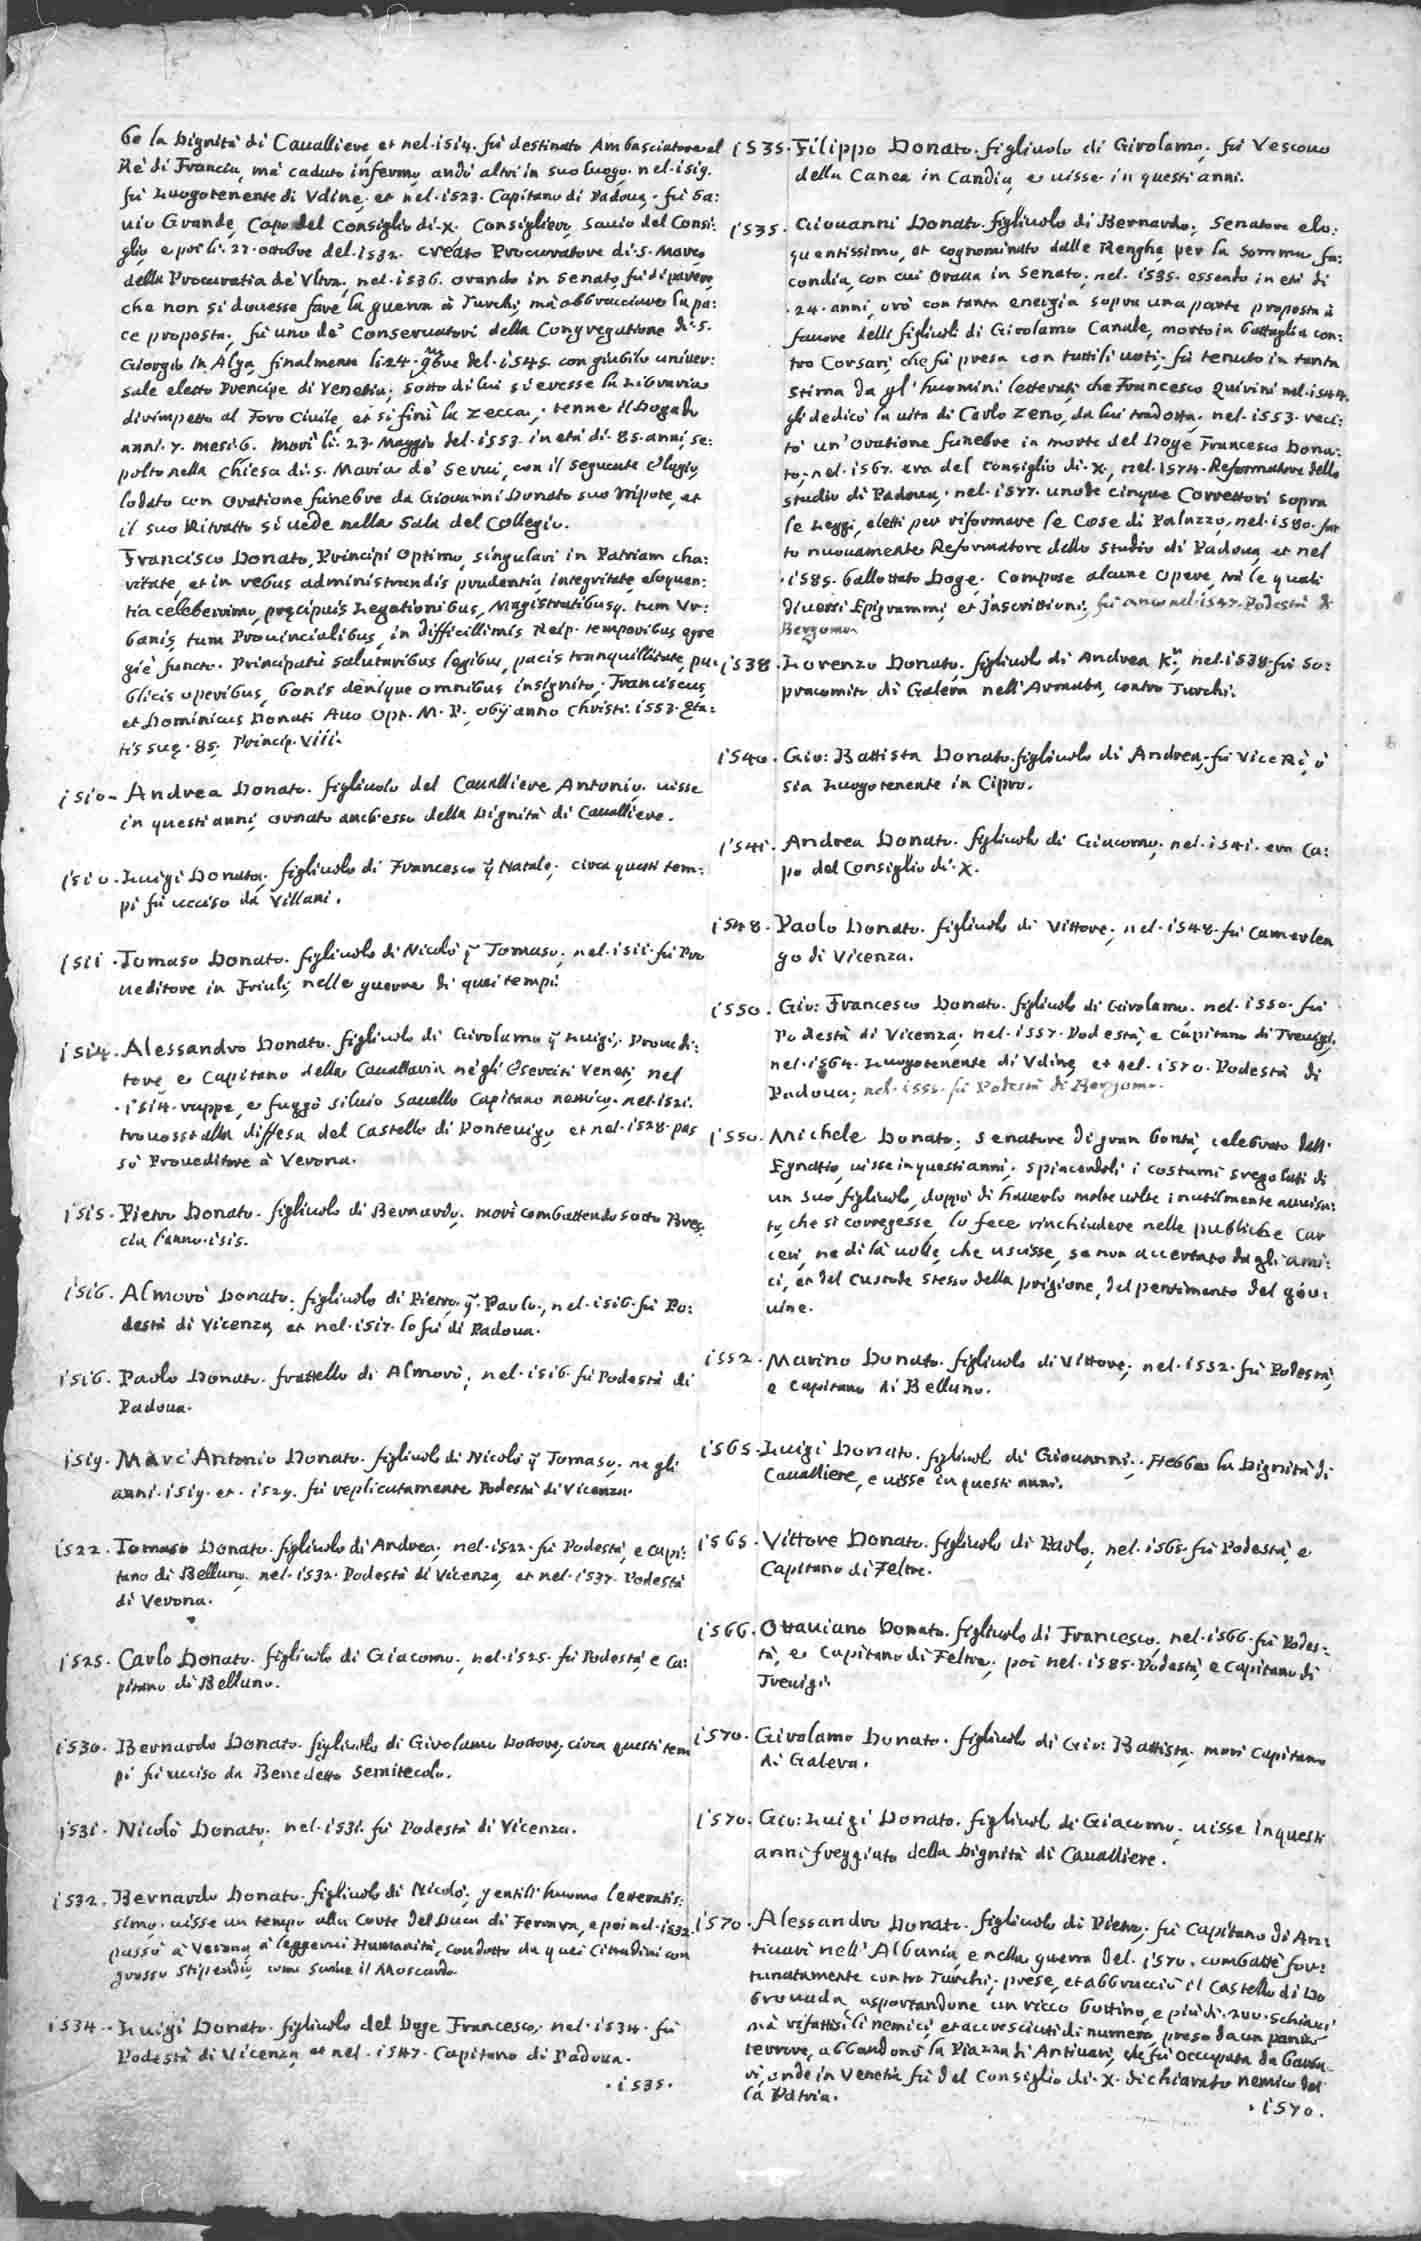 be la Dignità di Cavalliere, et nel·1514· fù destinato Ambasciatore al
Rè di Francia, mà caduto infermo, andò altri in suo luogo, nel·1519·
fù Luogotenente di Udine, et nel·1523· Capitano di Padoua, fù Sa:
uio Grande, Capo del Consiglio di·X· Consigliere, Sauio del Consi:
glio, e poi li·27·ottobre del·1532· creato Procuratore di·S·Marco,
della Procuratia de Ultra, nel·1536· orando in Senato, fù di parere,
che non si douesse fare la guerra à Turchi, mà abbracciare la pa:
ce proposta, fù uno de' Conseruatori della Congregatione di·S·
Giorgio in Alga, finalmente li·24·9bre del·1545· con giubilo uniuer:
sale eletto Prencipe di Venetia, sotto di lui si eresse la Libraria
dirimpetto al Foro Ciuile, et si finì la Zecca, tenne il Dogado
anni·7·mesi·6· morì li·23·Maggio del·1553· in età di·85·anni, se:
polto nella Chiesa di·S·Maria de' Serui, con il seguente elogio,
lodato con oratione funebre da Giouanni Donato suo Nipote, et
il suo Ritratto si uede nella Sala del Collegio.
Francisco Donato, Principi Optimo, singulari in Patriam cha:
ritate, et in rebus administrandis prudentia, integritate, eloquen:
tia celeberrimo, pręcipuis Legationibus, Magistratibusq. tum Ur:
banis, tum Prouincialibus, in difficillimis Reip· temporibus egre
giè functo· Principatù salutaribus legibus, pacis tranquillitate, pu:
blicis operibus, bonis denique omnibus insignito, Franciscus,
et Dominicus Donati Auo Opt·M·P· obijt anno Christi·1553·Ęta:
tis suę·85· Princip·VIII·
1510· Andrea Donato· figliuolo del Caualliere Antonio, uisse
in questi anni, ornato anch'esso della Dignità di Caualliere.
1510· Luigi Donato, figliuolo di Francesco q̄ Natale, circa questi tem:
pi fù ucciso da Villani.
1511· Tomaso Donato· figliuolo di Nicolò q̄ Tomaso, nel·1511·fù Pro
ueditore in Friuli, nelle guerre di quei tempi.
1514· Alessandro Donato· figliuolo di Girolamo q̄ Luigi, Proueedi:
tore, e Capitano della Cauallaria negli Eserciti Veneti, nel
·1514·ruppe, e fuggò Siluio Sauello Capitano nemico, nel·1521·
trouossi alla diffesa del Castello di Ponteuigo, et nel·1528·pas
sò Proueditore à Verona.
1515· Pietro Donato· figliuolo di Bernardo, morì combattendo sotto Bres:
cia l'anno·1515·
1516· Almorò Donato, figliuolo di Pietro q̄·Paulo, nel·1516·fù Po:
destà di Vicenza, et nel·1517·lo fù di Padoua.
1516· Paolo Donato· frattello di Almorò, nel·1516·fù Podestà di
Padoua.
1519· Marc'Antonio Donato· figliuolo di Nicolò q̄ Tomaso, negli
anni·1519·et·1529· fù replicatamente Podestà di Vicenza.
1522· Tomaso Donato· figliuolo di Andrea, nel·1522·fù Podestà, e Capi:
tano di Belluno, nel·1532·Podestà di Vicenza, et nel·1537·Podestà
di Verona.
1525· Carlo Donato· figliuolo di Giacomo, nel·1525·fù Podestà, e Ca:
pitano di Belluno.
1530· Bernardo Donato· figliuolo di Girolamo Dottore, circa questi tem
pi fù ucciso da Benedetto Semitecolo.
1531· Nicolò Donato, nel·1531·fù Podestà di Vicenza.
1532· Bernardo Donato· figliuolo di Nicolò, gentil'huomo letteratis:
simo, uisse un tempo alla Corte del Duca di Ferrara, e poi nel·1532·
passò à Verona, à leggerui Humanità, condotto da quei Cittadini con
grosso stipendio, come scriue il Moscardo
1534· Luigi Donato· figliuolo del Doge Francesco, nel·1534·fù
Podestà di Vicenza, et nel·1547·Capitano di Padoua.
·1535·
1535· Filippo Donato· figliuolo di Girolamo, fù Vescouo
della Canea in Candia, e uisse in questi anni.
1535· Giouanni Donato figliuolo di Bernardo, Senatore elo:
quentissimo, et cognominato dalle Renghe per la somma fa:
condia, con cui oraua in Senato, nel·1535·essendo in età di
·24·anni, orò con tanta energia sopra una parte proposta à
fauore delli figliuoli di Girolamo Canale, morto in battaglia con:
tro Corsari, che fù presa con tutti li uoti, fù tenuto in tanta
stima da gl'huomini letterati, che Francesco Quirini nel·1544·
gli dedicò la uita di Carlo Zeno, da lui tradotta, nel·1553·reci:
tò un'oratione funebre in morte del Doge Francesco Dona:
to, nel·1567·era del Consiglio di·X·, nel·1574·Reformatore dello
studio di Padoua, nel·1577·uno de cinque Correttori sopra
le Leggi, eletti per riformare le Cose di Palazzo, nel·1580·fat
to nuouamente Reformatore dello Studio di Padoua, et nel
·1585·ballottato Doge, Compose alcune Opere, trà le quali
diuersi Epigrammi, et Inscrittioni, fù anco nel·1547·Podestà di
Bergomo
1538· Lorenzo Donato, figliuolo di Andrea Kr, nel·1538·fù So:
pracomito di Galera nell'Armata, contro Turchi.
1540· Gio: Battista Donato·figliuolo di Andrea, fù ViceRè, ò
sia Luogotenente in Cipro.
1541· Andrea Donato· figliuolo di Giacomo, nel·1541·era Ca:
po del Consiglio di·X·
1548· Paolo Donato· figliuolo di Vittore, nel·1548·fù Camerlen
go di Vicenza.
1550· Gio: Francesco Donato· figliuolo di Girolamo· nel·1550·fù
Podestà di Vicenza· nel·1557·Podestà, e Capitano di Treuigi,
nel·1564·Luogotenente di Udine, et nel·1570·Podestà di
Padoua, nel·1555·fù Podestà di Bergomo·
1550· Michele Donato, Senatore di gran bontà, celebrato dall'
Egnatio, uisse in questi anni, spiacendoli i costumi sregolati di
un suo figliuolo, doppò di hauerlo molte uolte inutilmente auuisa:
to, che si corregesse, lo fece rinchiudere nelle publiche Car
ceri, ne di là uolle, che uscisse, se non accertato dagli ami:
ci, et dal Custode stesso della prigione, del pentimento del gio:
uine.
1552· Marino Donato· figliuolo di Vittore, nel·1552·fù Podestà,
e Capitano di Belluno.
1565· Luigi Donato· figliuolo di Giouanni, Hebbe la Dignità di
Caualliere, e uisse in questi anni.
1565· Vittore Donato·figliuolo di Paolo, nel·1565·fù Podestà, e
Capitano di Feltre.
1566· Ottauiano Donato· figliuolo di Francesco, nel·1566·fù Podes:
tà, e Capitano di Feltre, poi nel·1585·Podestà, e Capitano di
Treuigi.
1570· Girolamo Donato· figliuolo di Gio: Battista, morì Capitano
di Galera.
1570· Gio: Luigi Donato· figliuolo di Giacomo, uisse in questi
anni freggiato della Dignità di Caualliere.
1570· Alessandro Donato· figliuolo di Pietro, fù Capitano di An:
tiuari nell'Albania, e nella guerra del·1570·combattè for:
tunatamente contro Turchi, prese, et abbracciò il Castello di Do
brouada, asportandone un ricco bottino, e più di·200·schiaui
mà rifattisi li nemici, et accresciuti di numero, preso da un panico
terrore, abbandonò la Piazza di Antiuari, che fù occupata da barba
ri, onde in Venetia fù dal Consiglio di·X·dichiarato nemico del
la Patria.
·1570·